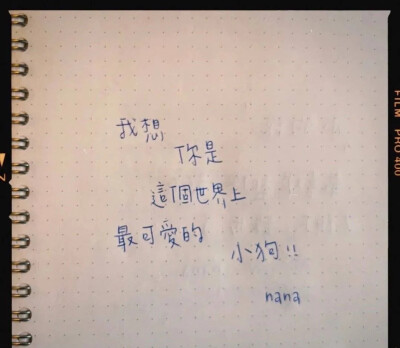 我想
你是
這個世界上
最可愛的
小狗!!
nana
FILM PRO 400